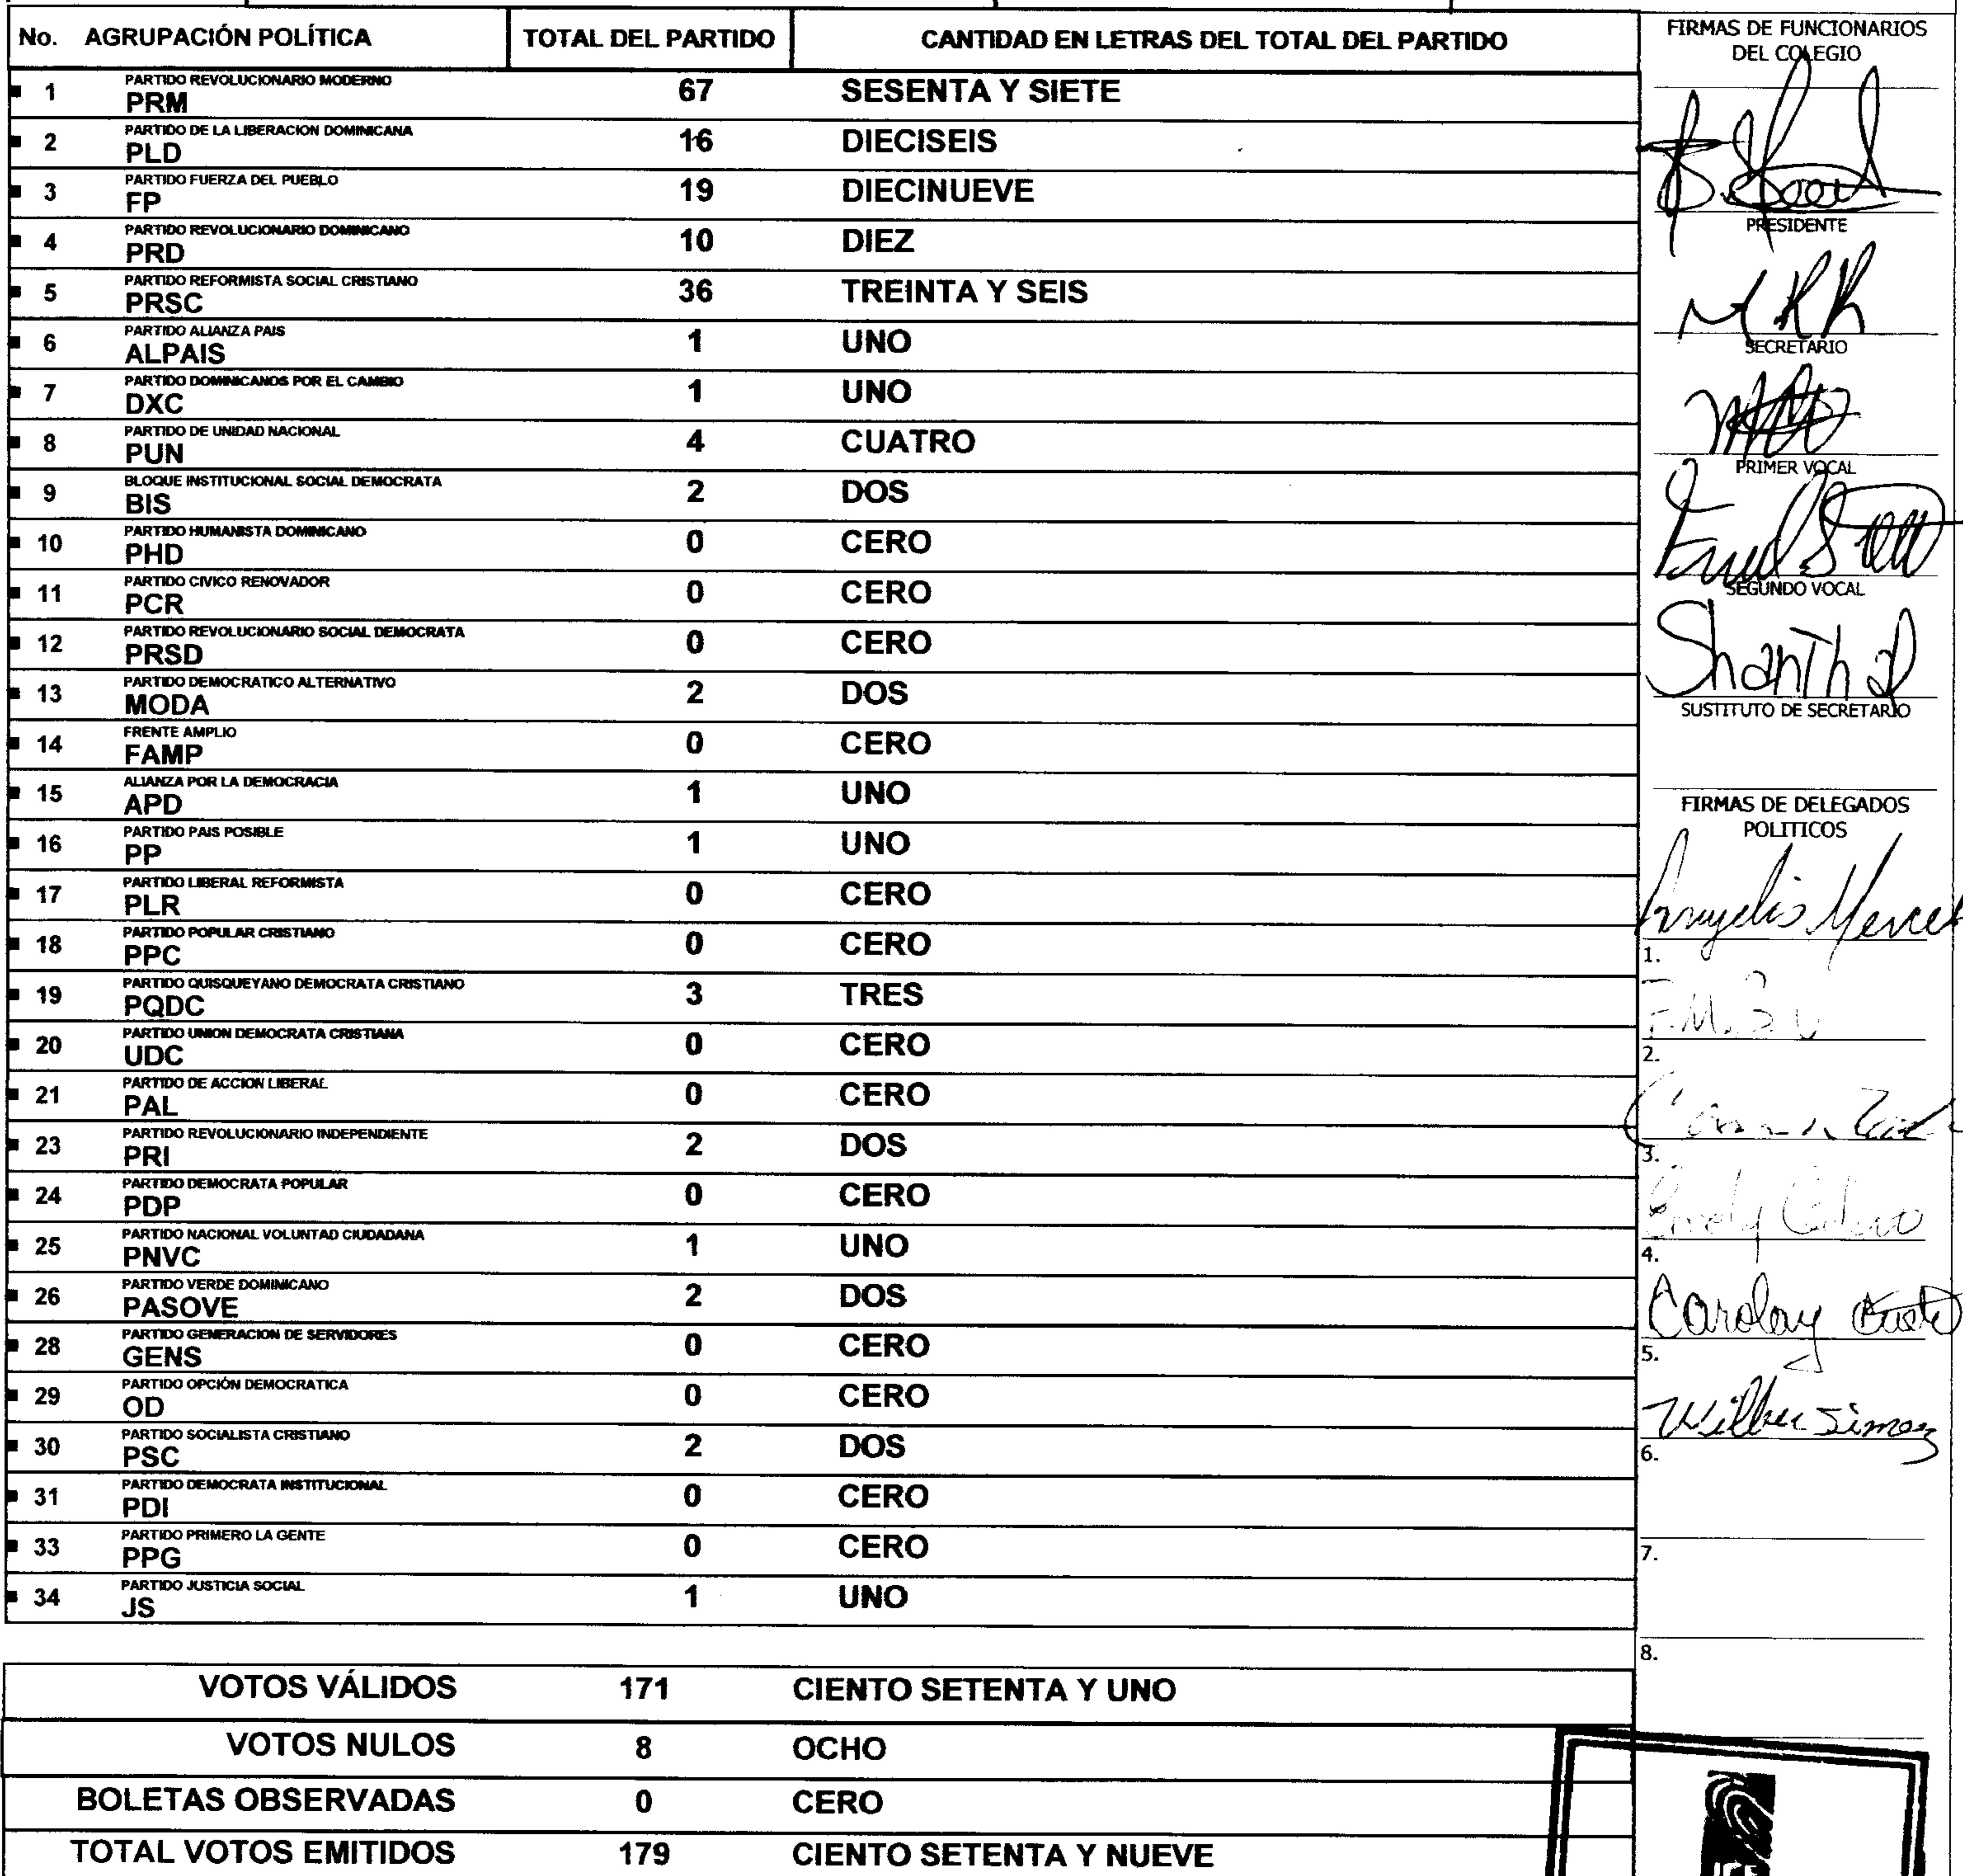 No. AGRUPACIÓN POLÍTICA TOTAL DEL PARTIDO CANTIDAD EN LETRAS DEL TOTAL DEL PARTIDO
PARTIDO REVOLUCIONARIO MODERNO
1 PRM 67 SESENTA Y SIETE
PARTIDO DE LA LIBERACION DOMINICANA
2 PLD 16 DIECISEIS
PARTIDO FUERZA DEL PUEBLO
3 FP 19 DIECINUEVE
PARTIDO REVOLUCIONARIO DOMINICANO
4 PRD 10 DIEZ
PARTIDO REFORMISTA SOCIAL CRISTIANO
5 PRSC 36 TREINTA Y SEIS
PARTIDO ALIANZA PAIS
6 ALPAIS 1 UNO
PARTIDO DOMINICANOS POR EL CAMBIO
7 DXC 1 UNO
PARTIDO DE UNIDAD NACIONAL
8 PUN 4 CUATRO
BLOQUE INSTITUCIONAL SOCIAL DEMOCRATA
9 BIS 2 DOS
PARTIDO HUMANISTA DOMINICANO
10 PHD 0 CERO
PARTIDO CIVICO RENOVADOR
11 PCR 0 CERO
PARTIDO REVOLUCIONARIO SOCIAL DEMOCRATA
12 PRSD 0 CERO
PARTIDO DEMOCRATICO ALTERNATIVO
13 MODA 2 DOS
FRENTE AMPLIO
14 FAMP 0 CERO
ALIANZA POR LA DEMOCRACIA
15 APD 1 UNO
PARTIDO PAIS POSIBLE
16 PP 1 UNO
PARTIDO LIBERAL REFORMISTA
17 PLR 0 CERO
PARTIDO POPULAR CRISTIANO
18 PPC 0 CERO
PARTIDO QUISQUEYANO DEMOCRATA CRISTIANO
19 PQDC 3 TRES
PARTIDO UNION DEMOCRATA CRISTIANA
20 UDC 0 CERO
PARTIDO DE ACCION LIBERAL
21 PAL 0 CERO
PARTIDO REVOLUCIONARIO INDEPENDIENTE
23 PRI 2 DOS
PARTIDO DEMOCRATA POPULAR
24 PDP 0 CERO
PARTIDO NACIONAL VOLUNTAD CIUDADANA
25 PNVC 1 UNO
PARTIDO VERDE DOMINICANO
26 PASOVE 2 DOS
PARTIDO GENERACION DE SERVIDORES
28 GENS 0 CERO
PARTIDO OPCIÓN DEMOCRATICA
29 OD 0 CERO
PARTIDO SOCIALISTA CRISTIANO
30 PSC 2 DOS
PARTIDO DEMOCRATA INSTITUCIONAL
31 PDI 0 CERO
PARTIDO PRIMERO LA GENTE
33 PPG 0 CERO
PARTIDO JUSTICIA SOCIAL
34 JS 1 UNO
VOTOS VÁLIDOS 171 CIENTO SETENTA Y UNO
VOTOS NULOS 8 OCHO
BOLETAS OBSERVADAS 0 CERO
TOTAL VOTOS EMITIDOS 179 CIENTO SETENTA Y NUEVE
FIRMAS DE FUNCIONARIOS
DEL COLEGIO
PRESIDENTE
SECRETARIO
PRIMER VOCAL
SEGUNDO VOCAL
Shanthal
SUSTITUTO DE SECRETARIO
FIRMAS DE DELEGADOS
POLITICOS
1.
2.
3.
4.
5.
6.
7.
8.